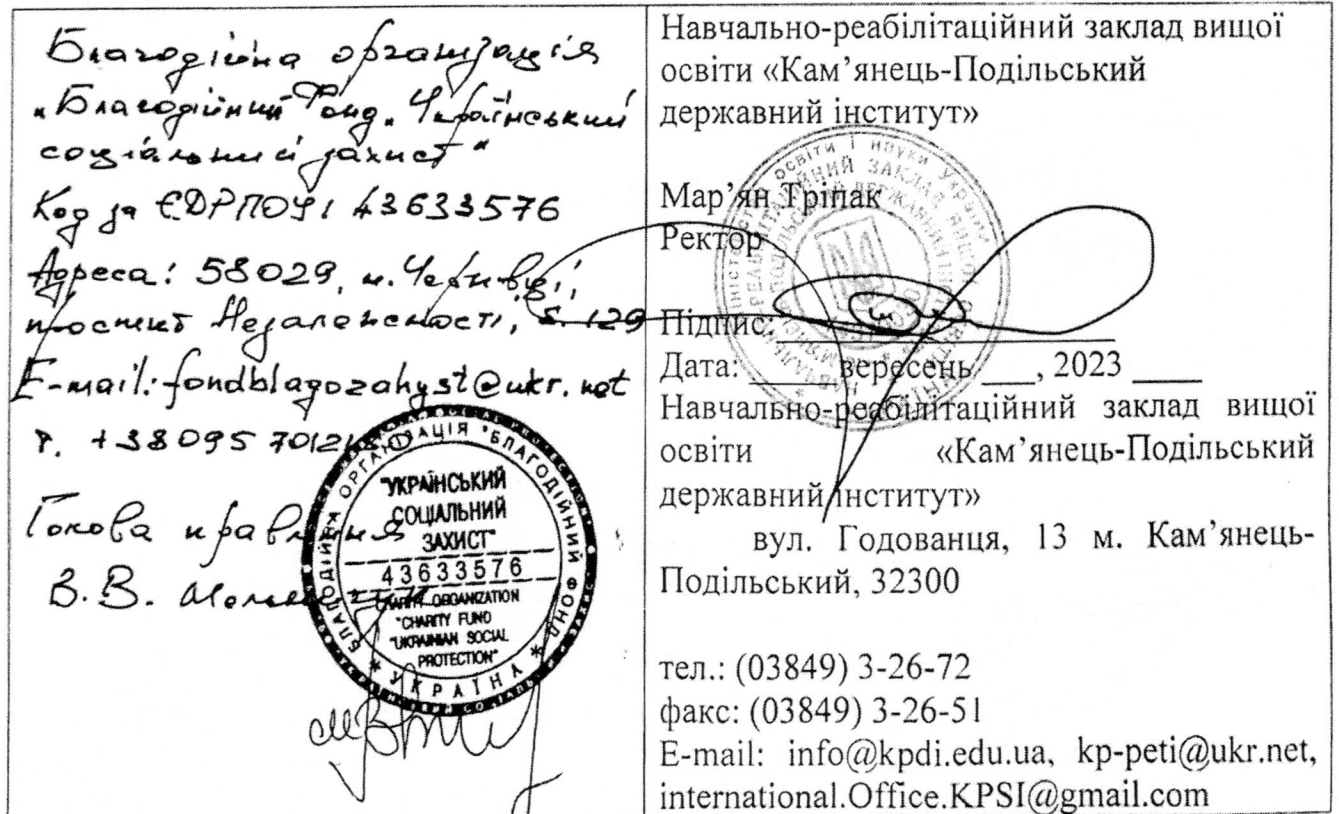 Благодійна організація
„Благодійний Фонд „Український
соціальний захист"
Код за ЄДРПОУ: 43633576
Адреса: 58029, м. Чернівці,
проспект Незалежності, б. 129
E-mail: fondblagozahyst@ukr.net
т. +38095
Голова правління
В.В.
БЛАГОДІЙНА ОРГАНІЗАЦІЯ "БЛАГОДІЙНИЙ ФОНД
"УКРАЇНСЬКИЙ
СОЦІАЛЬНИЙ
ЗАХИСТ"
43633576
CHARITY ORGANIZATION
"CHARITY FUND
"UKRAINIAN SOCIAL
PROTECTION"
* УКРАЇНА *
Навчально-реабілітаційний заклад вищої
освіти «Кам’янець-Подільський
державний інститут»
Мар’ян Тріпак
Ректор
Підпис:
Дата: ____ вересень ___, 2023 ____
Навчально-реабілітаційний заклад вищої
освіти «Кам’янець-Подільський
державний інститут»
вул. Годованця, 13 м. Кам’янець-
Подільський, 32300
тел.: (03849) 3-26-72
факс: (03849) 3-26-51
E-mail: info@kpdi.edu.ua, kp-peti@ukr.net,
international.Office.KPSI@gmail.com